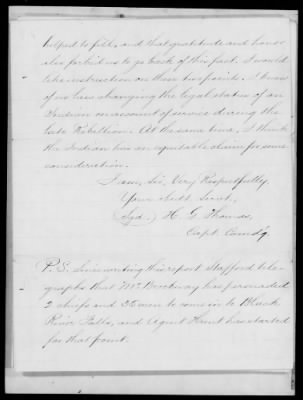 helped to fill, and that gratitude and honor
also forbid us to go back of this fact. I would
like instruction on these two points. I know
of no law changing the legal status of an
Indian on account of service during the
late Rebellion. At the same time, I think
the Indian has an equitable claim for some
consideration.
I am, Sir, Very Respectfully,
Your obdt. Servt.
(Sgd.) H. G.
Capt. Comd'g.
P.S. Since writing this report Stafford tele-
graphs that Mr. Brockway has persuaded
2 chiefs and men to come in to Black
River Falls, and Agent Hunt has started
for that point.